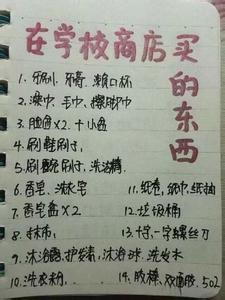 在学校商店买的东西
1. 牙刷、牙膏、漱口杯
2. 澡巾、毛巾、擦脚巾
3. 脸盆×2、+小盆
4. 刷鞋刷子、
5. 刷碗刷子、洗洁精
6. 香皂、洗衣皂
7. 香皂盒×2
8. 抹布、
9. 沐浴露、护发素、沐浴球、洗发水
10. 洗衣粉、
11. 纸卷、纸巾、纸抽
12. 垃圾桶
13. 十字、一字螺丝刀
14. 胶棒、双面胶、502